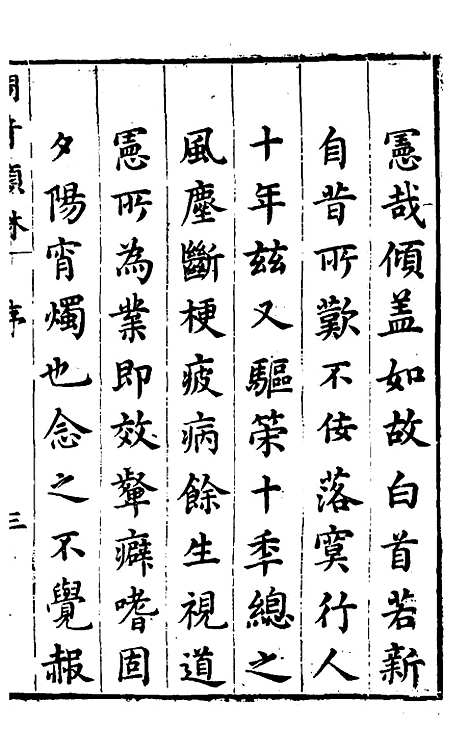 憲哉傾盖如故白首若新
自昔所歎不佞落寞行人
十年兹又驅策十秊總之
風塵斷梗疲病餘生視道
憲所為業即效顰癖嗜固
夕陽宵燭也念之不覺赧
序
三